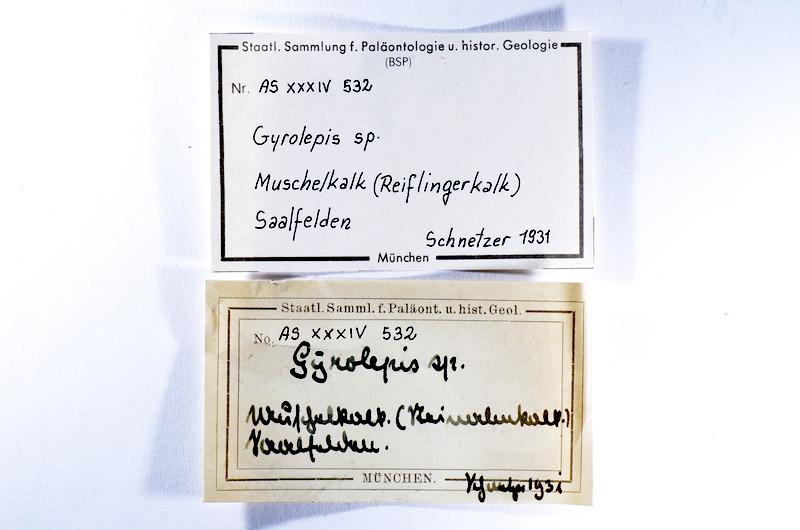 Staatl. Sammlung f. Paläontologie u. histor. Geologie
(BSP)
Nr. AS XXXIV 532
Gyrolepis sp.
Muschelkalk (Reiflingerkalk)
Saalfelden
Schnetzer 1931
München
Staatl. Samml. f. Paläont. u. hist. Geol.
No. AS XXXIV 532
Gyrolepis sp.
Muschelkalk.
Saalfelden.
MÜNCHEN.
Schnetzer 1931